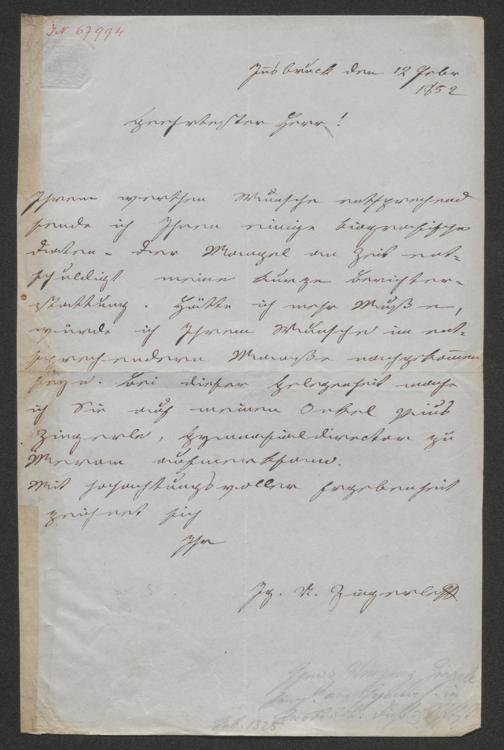 J.N. 67994
Insbruck den 12 Febr
1852
Geehrtester Herr!
Ihrem werthen Wunsche entsprechend
sende ich Ihnen einige biografische
Daten. Der Mangel an Zeit ent-
schuldigt meine kurze Berichter-
stattung. Hätte ich mehr Muße,
würde ich Ihrem Wunsche im ent-
sprechenderen Maaße nachgekommen
seyn. Bei dieser Gelegenheit mache
ich Sie auf meinen Onkel Pius
Zingerle, Gymnasialdirector zu
Meran aufmerksam.
Mit hochachtungsvoller Ergebenheit
zeichnet sich
Ihr
Ig. V. Zingerle
Ignaz Vinzenz Zingerle
geb. 1825